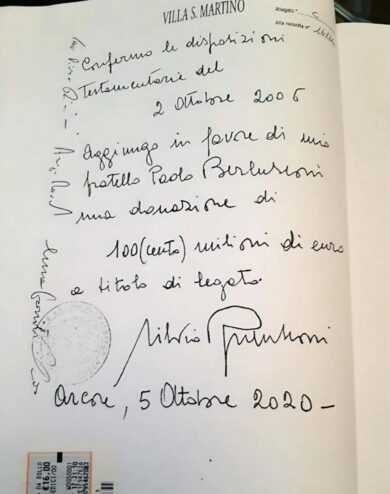 VILLA S. MARTINO
Allegato
Alla raccolta n°
Confermo le disposizioni
Testamentarie del
2 Ottobre 2006
Aggiungo in favore di mio
fratello Paolo Berlusconi
una donazione di
100 (cento) milioni di euro
a titolo di legato.
Silvio Berlusconi
Arcore, 5 Ottobre 2020-
€16,00